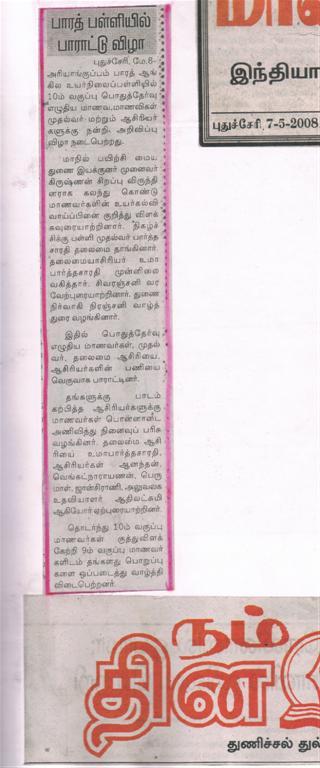 பாரத் பள்ளியில்
பாராட்டு விழா
புதுச்சேரி, மே.8-
அரியாங்குப்பம் பாரத் ஆங்
கில உயர்நிலைப்பள்ளியில்
10ம் வகுப்பு பொதுத்தேர்வு
எழுதிய மாணவ,மாணவிகள்
முதல்வர் மற்றும் ஆசிரியர்
களுக்கு நன்றி அறிவிப்பு
விழா நடைபெற்றது.
மாநில பயிற்சி மைய
துணை இயக்குனர் முனைவர்
கிருஷ்ணன் சிறப்பு விருந்தி
னராக கலந்து கொண்டு
மாணவர்களின் உயர்கல்வி
வாய்ப்பினை குறித்து விளக்
கவுரையாற்றினார். நிகழ்ச்
சிக்கு பள்ளி முதல்வர் பார்த்த
சாரதி தலைமை தாங்கினார்.
தலைமையாசிரியர் உமா
பார்த்தசாரதி முன்னிலை
வகித்தார். சிவரஞ்சனி வர
வேற்புரையாற்றினார். துணை
நிர்வாகி நிரஞ்சனி வாழ்த்
துரை வழங்கினார்.
இதில் பொதுத்தேர்வு
எழுதிய மாணவர்கள், முதல்
வர், தலைமை ஆசிரியை,
ஆசிரியர்களின் பணியை
வெகுவாக பாராட்டினர்.
தங்களுக்கு பாடம்
கற்பித்த ஆசிரியர்களுக்கு
மாணவர்கள் பொன்னாடை
அணிவித்து நினைவுப் பரிசு
வழங்கினர். தலைமை ஆசி
ரியை உமாபார்த்தசாரதி,
ஆசிரியர்கள் ஆனந்தன்,
வெங்கட்நாராயணன், பெரு
மாள், ஜான்சிராணி, அலுவலக
உதவியாளர் ஆதிலட்சுமி
ஆகியோர் ஏற்புரையாற்றினர்.
தொடர்ந்து 10ம் வகுப்பு
மாணவர்கள் குத்துவிளக்
கேற்றி 9ம் வகுப்பு மாணவர்
களிடம் தங்களது பொறுப்பு
களை ஒப்படைத்து வாழ்த்தி
விடைபெற்றனர்.
இந்தியா
புதுச்சேரி, 7-5-2008
நம்
தின
துணிச்சல் துல்